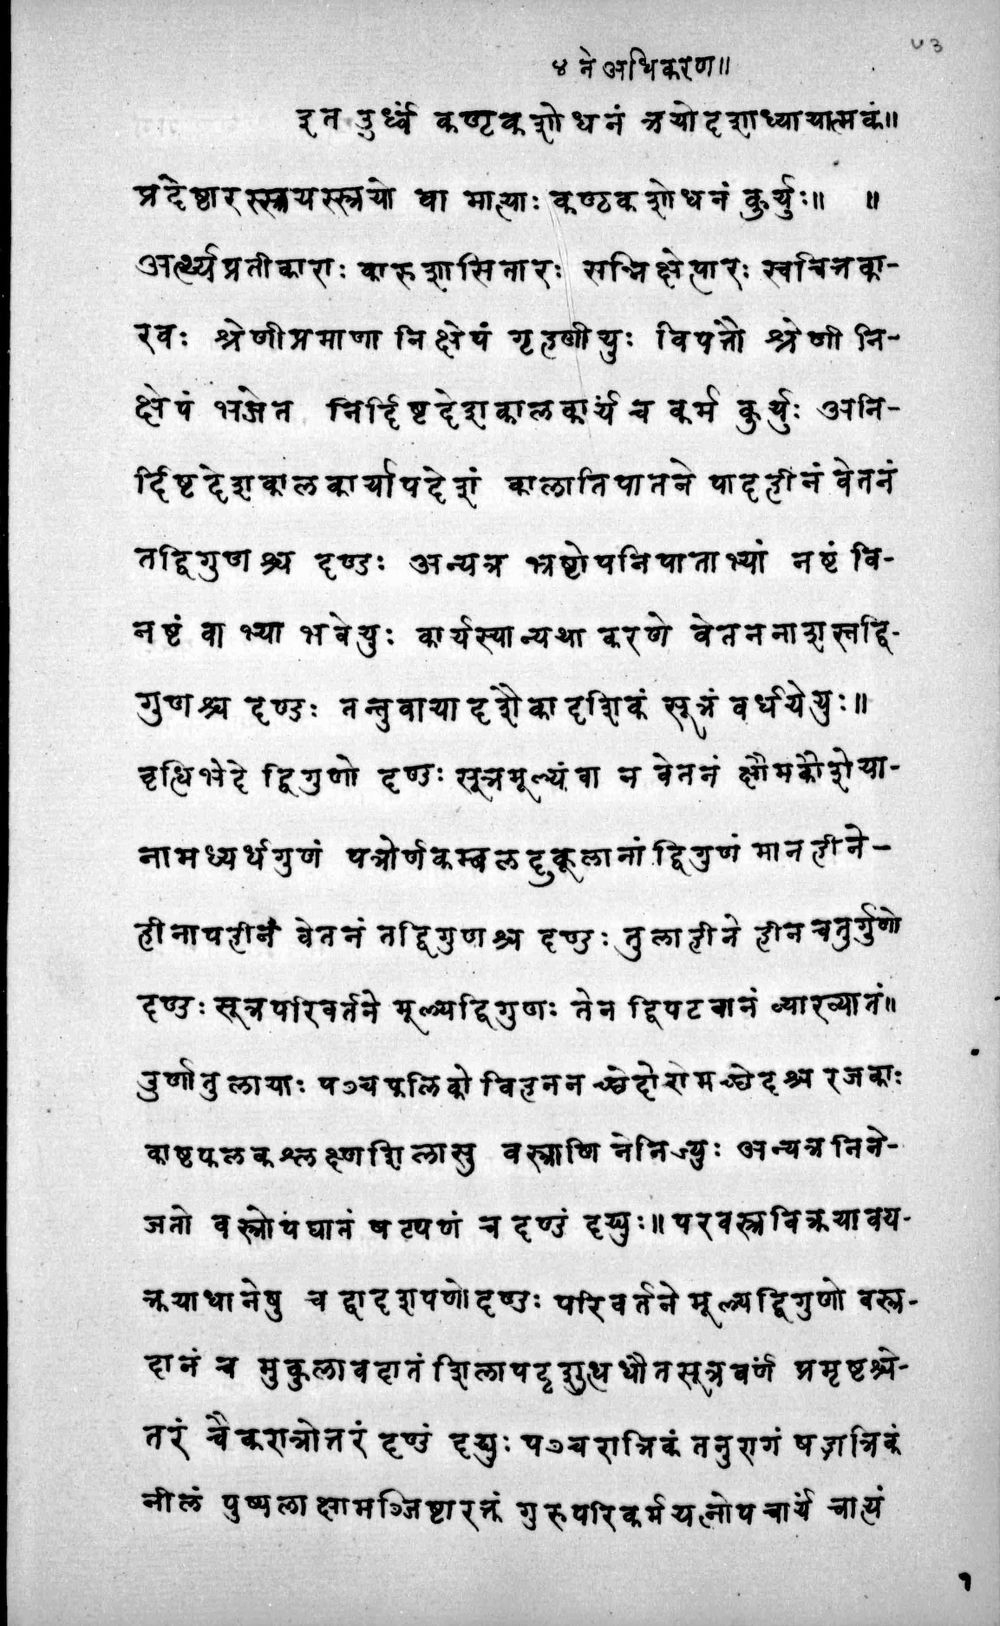 ५३
४ ने अधिकरण॥
इत उर्ध्वं कण्टकशोधनं त्रयोदशाध्यायात्मकं॥
प्रदेष्टारस्स्त्रयस्स्त्रयो वा मात्याः कण्टकशोधनं कुर्युः॥ ॥
अर्त्थ्यप्रतीकाराः कारुशासितारः सन्निक्षेप्तारः स्वचित्तका-
रवः श्रेणीप्रमाणा निक्षेपं गृह्णीयुः विपत्तौ श्रेणी नि-
क्षेपं भजेत निर्दिष्टदेशकालकार्यं च कर्म कुर्युः अनि-
र्दिष्टदेशकालकार्यापदेशं कालातिपातने पादहीनं वेतनं
तद्द्विगुणश्च दण्डः अन्यत्र भ्रष्टोपनिपाताभ्यां नष्टं वि-
नष्टं वा भ्या भवेयुः कार्यस्यान्यथा करणे वेतननाशस्तद्द्वि-
गुणश्च दण्डः तन्तुवाया दशैकादशिकं सूत्रं वर्धयेयुः॥
वृधिभेदे द्विगुणो दण्डः सूत्रमूल्यं वा न वेतनं क्षौमकौशेया-
नामध्यर्धगुणं पत्रोर्णकम्बलदुकूलानां द्विगुणं मानहीने-
हीनापहीनं वेतनं तद्द्विगुणश्च दण्डः तुलाहीने हीनचतुर्गुणो
दण्डः सूत्रपरिवर्तने मूल्यद्विगुणः तेन द्विपटवानं व्याख्यातं॥
उर्णातुलायाः पञ्चपलिको विहननच्छेदोरोमच्छेदश्च रजकाः
काष्टफलकश्लक्ष्णशिलासु वस्त्राणि नेनिज्युः अन्यत्र निने-
जतो वस्त्रोपघातं षट्पणं च दण्डं दद्युः॥ परवस्त्रविक्रयावय-
क्रयाधानेषु च द्वादशपणो दण्डः परिवर्तने मूल्यद्विगुणो वस्त्र-
दानं च मुकुलावदातं शिलापदृशुध्ध धौतसूत्रवर्णं प्रमृष्टश्वे-
तरं चैकरात्रोत्तरं दण्डं दद्युः पञ्चरात्रिकं तनुरागं षड्रात्रिकं
नीलं पुष्पलाक्षामञ्जिष्टारक्तं गुरुपरिकर्म यत्नोपचार्यं चात्यं
१